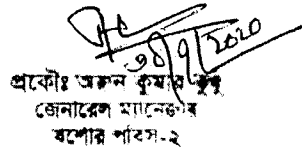 ৩০/৭/২০২০
প্রকৌঃ অরুন কুমার কুন্ডু
জেনারেল ম্যানেজার
যশোর পবিস-২